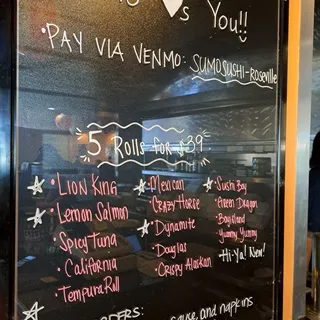 ♥s You!!
• PAY VIA VENMO: SUMOSUSHI-Roseville
5 Rolls for $39
☆ • LION KING
☆ • Lemon Salmon
• Spicy Tuna
• California
• Tempura Roll
☆ • Mexican
• Crazy Horse
☆ • Dynamite
• Douglas
• Crispy Alaskan
☆ • Sushi Boy
• Green Dragon
• Boyland
• Yummy Yummy
• Hi-Ya! New!
☆
ORDERS:
sauce, and napkins